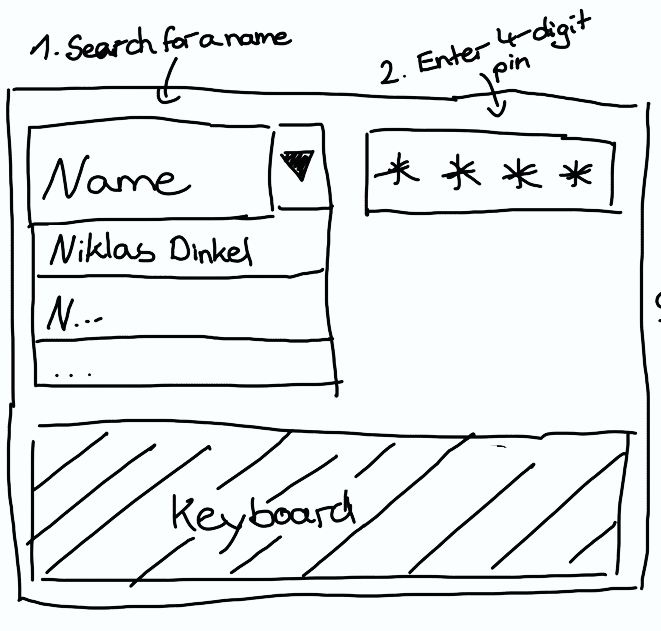 1. Search for a name
2. Enter 4-digit
pin
Name
* * * *
Niklas Dinkel
N...
...
Keyboard